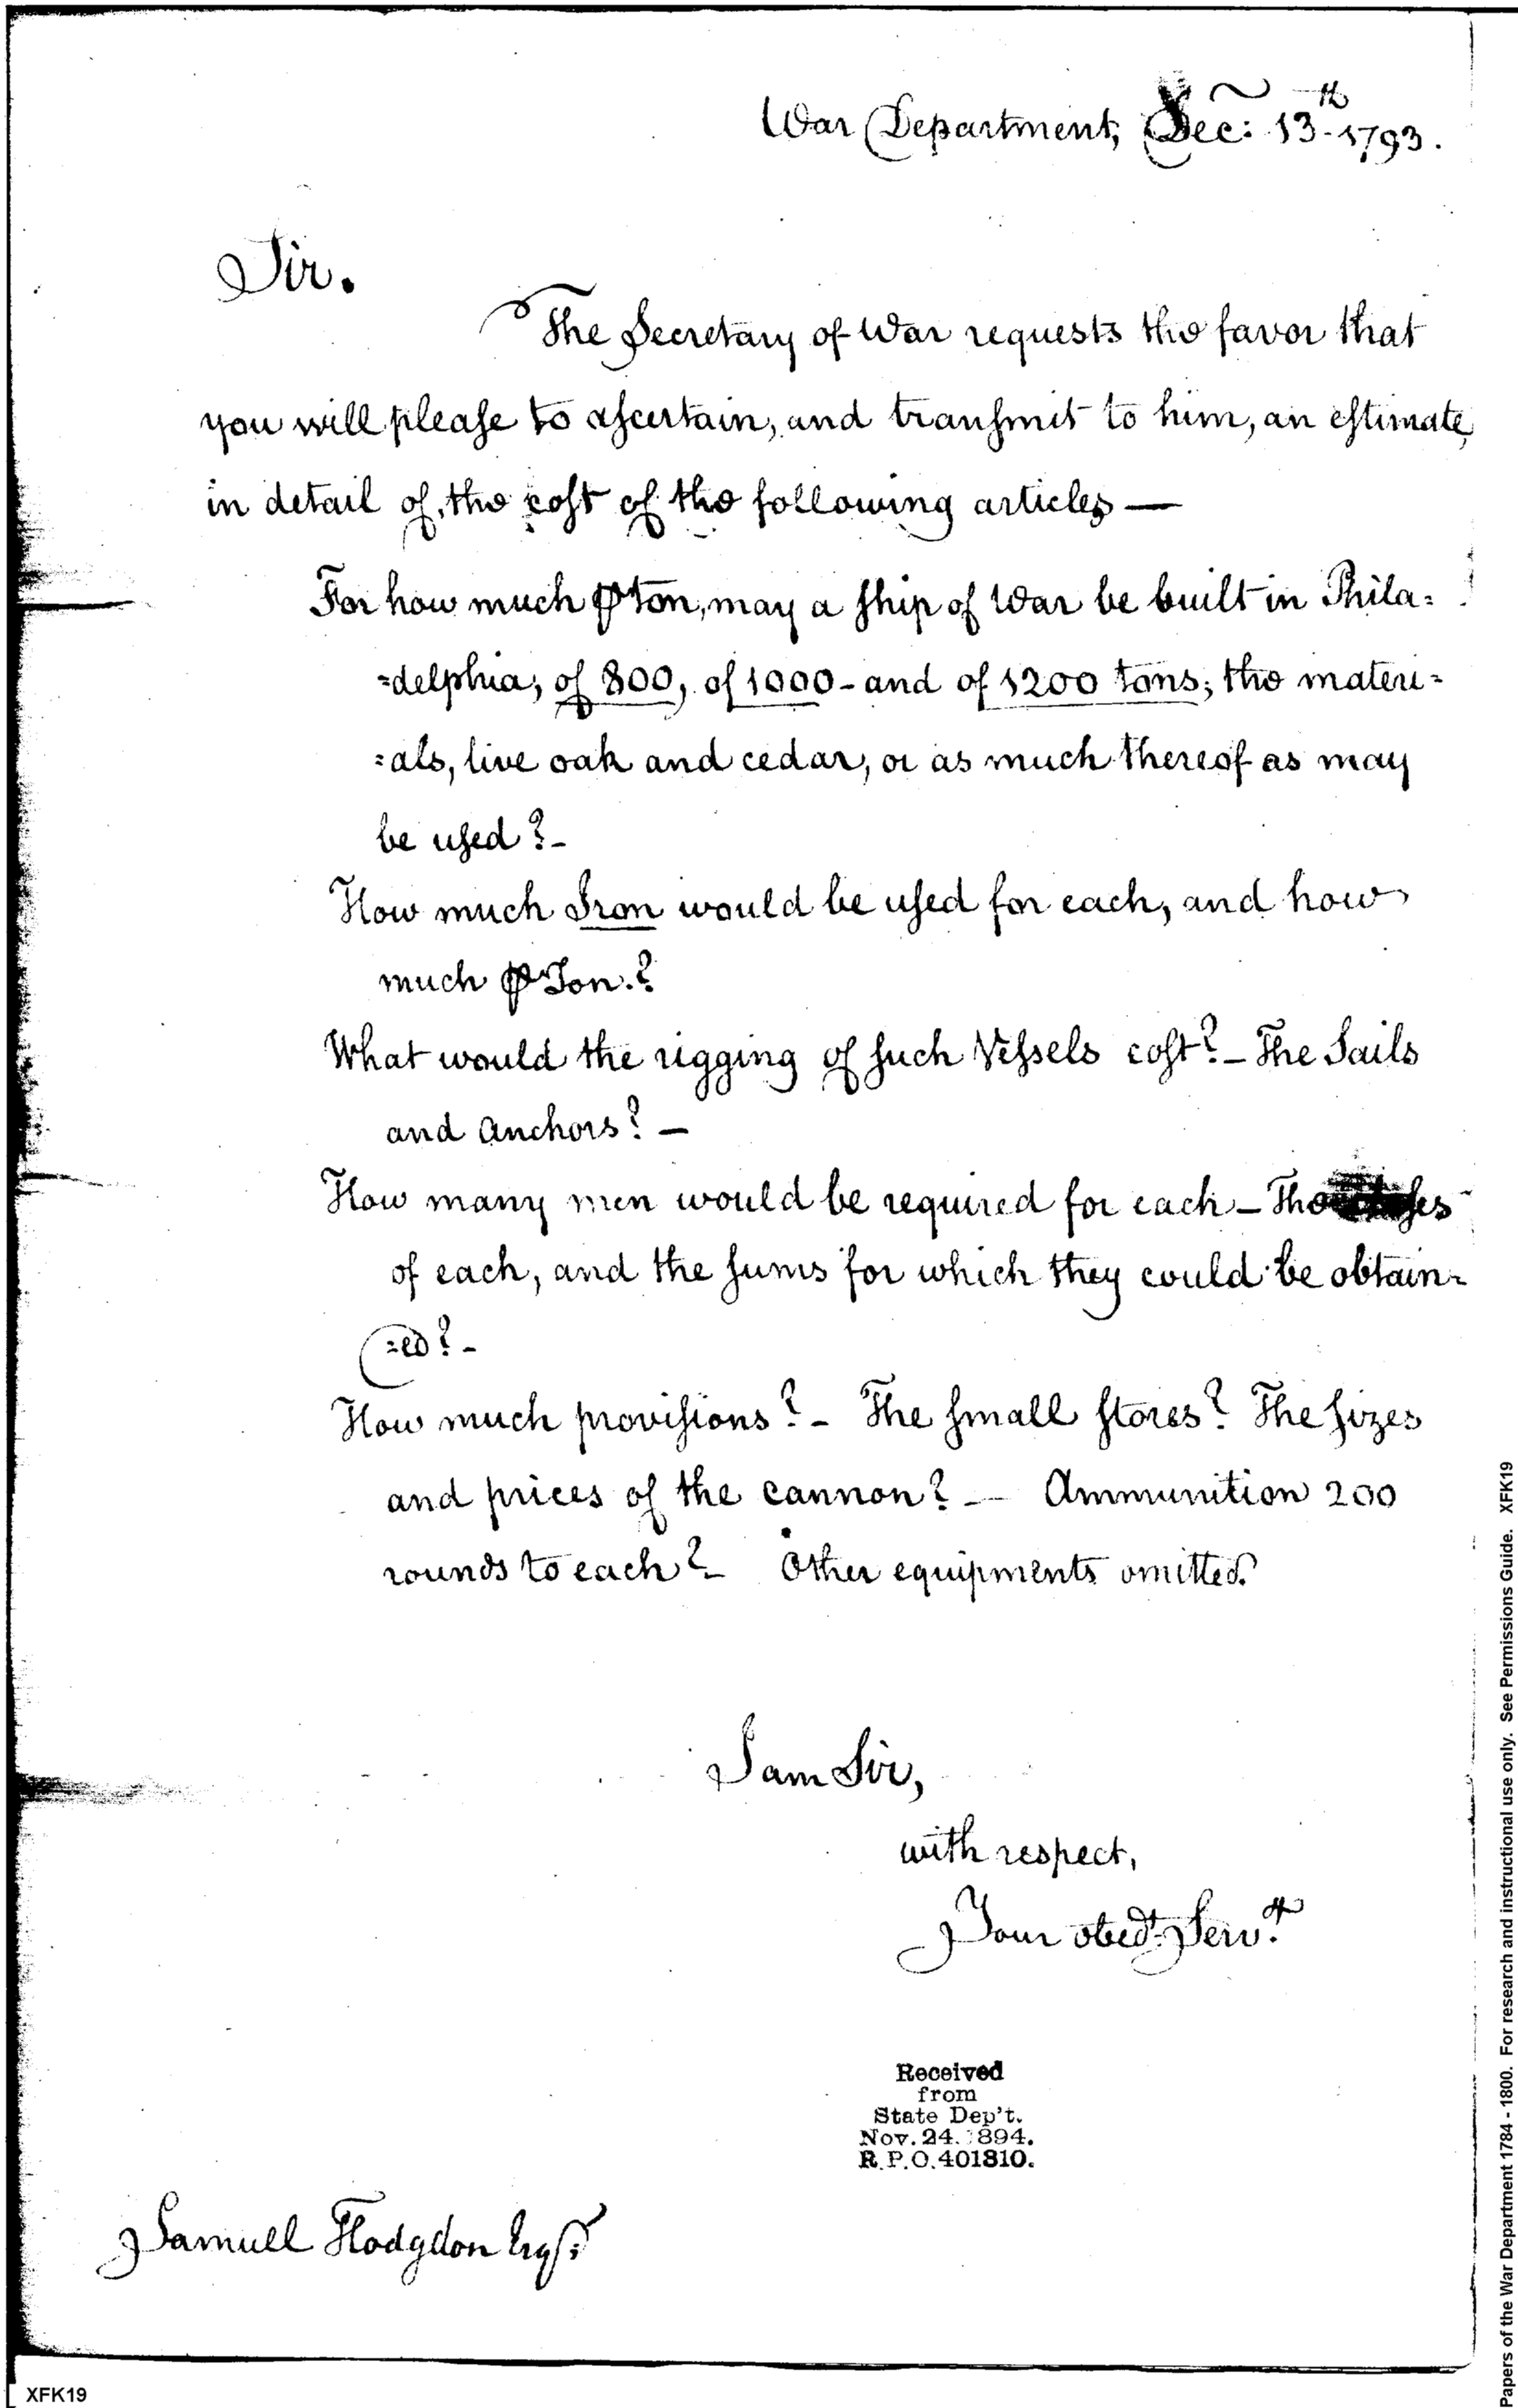 War Department, Dec: 13th 1793.
Sir.
The Secretary of War requests the favor that
you will please to ascertain, and transmit to him, an estimate,
in detail of, the cost of the following articles —
For how much ⅌ ton, may a ship of War be built in Phila=
=delphia, of 800, of 1000 - and of 1200 tons; the materi=
=als, live oak and cedar, or as much thereof as may
be used? -
How much Iron would be used for each, and how
much ⅌ Ton.?
What would the rigging of such Vessels cost? - The Sails
and anchors? —
How many men would be required for each - The
of each, and the sums for which they could be obtain=
=ed? -
How much provisions? - The small stores? The sizes
and prices of the cannon? — Ammunition 200
rounds to each? Other equipments omitted.
I am Sir,
with respect,
Your obedt. Servt.
Received
from
State Dep't.
Nov. 24. 1894.
R.P.O. 401810.
Samuel Hodgdon Esqr.
XFK19
Papers of the War Department 1784 - 1800. For research and instructional use only. See Permissions Guide. XFK19